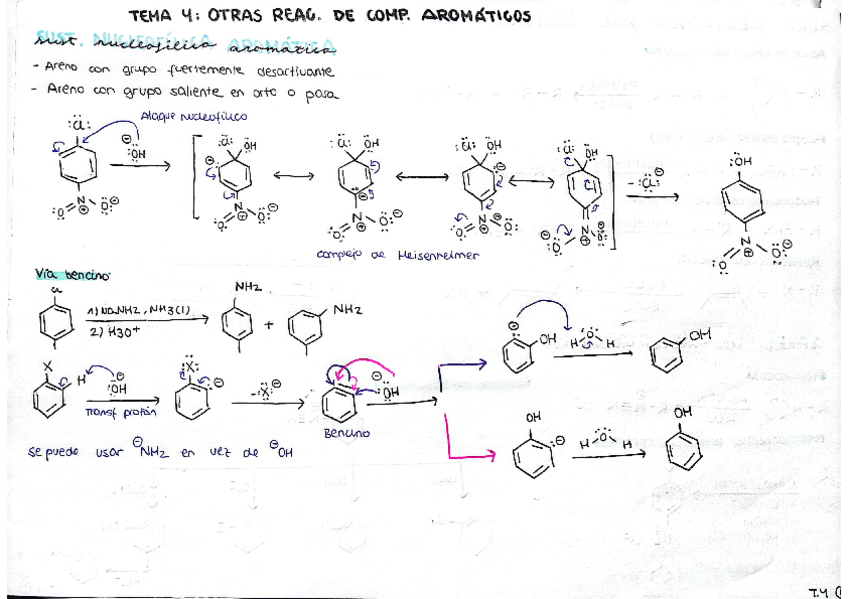 TEMA 4: OTRAS REAC. DE COMP. AROMÁTICOS
SUST. NUCLEOFÍLICA AROMÁTICA
sust. nucleofílica aromática
- Areno con grupo fuertemente desactivante
- Areno con grupo saliente en orto o para
Ataque nucleofílico
:C̈l: ⊖ :ÖH
:C̈l ÖH
:C̈l ÖH
:C̈l ÖH
:C̈l ÖH
- :C̈l:⊖
:ÖH
N ⊕ O O ⊖
complejo de Meisenheimer
Vía bencino
Cl
1) NaNH2, NH3(l)
2) H3O+
NH2
+
NH2
X H ⊖ :ÖH
Transf protón
:Ẍ: ⊖
-:Ẍ:⊖
Bencino
⊖ :ÖH
⊖ OH H Ö H
OH
OH ⊖ H Ö H
OH
se puede usar ⊖NH2 en vez de ⊖OH
T.4